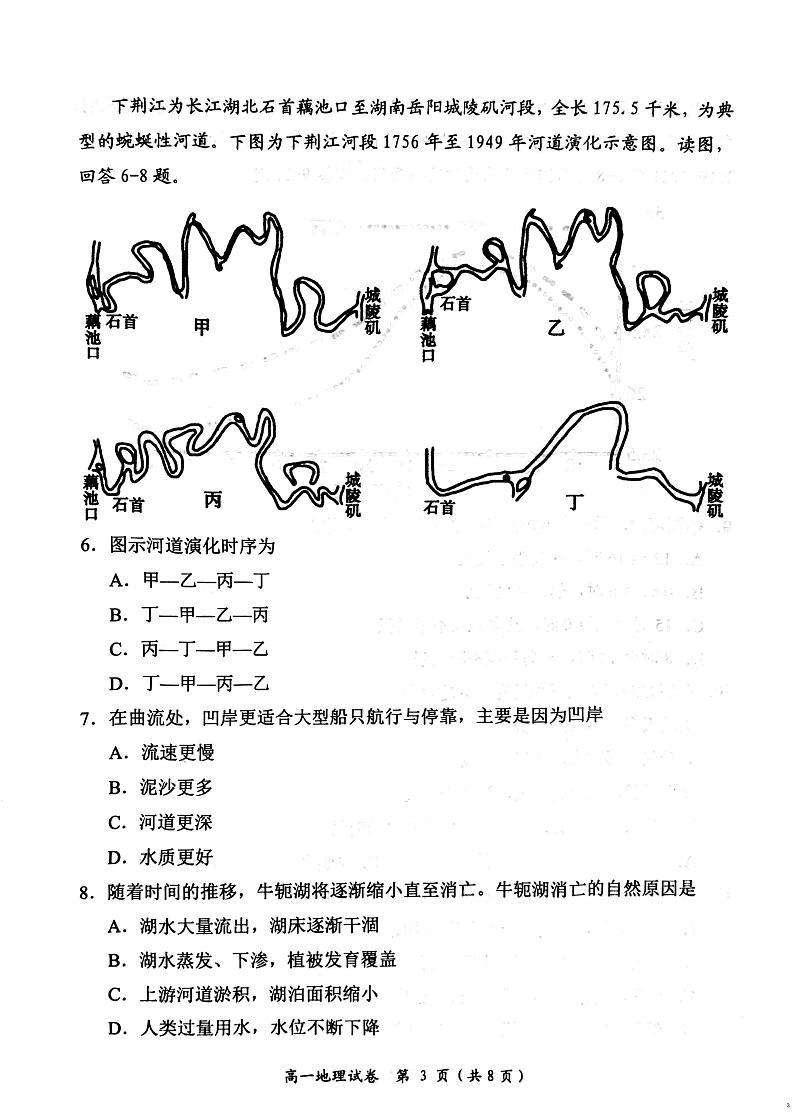 下荆江为长江湖北石首藕池口至湖南岳阳城陵矶河段，全长 175.5 千米，为典
型的蜿蜒性河道。下图为下荆江河段 1756 年至 1949 年河道演化示意图。读图，
回答 6-8 题。
藕池口
石首
甲
城陵矶
藕池口
石首
乙
城陵矶
藕池口
石首
丙
城陵矶
石首
丁
城陵矶
6．图示河道演化时序为
A．甲—乙—丙—丁
B．丁—甲—乙—丙
C．丙—丁—甲—乙
D．丁—甲—丙—乙
7．在曲流处，凹岸更适合大型船只航行与停靠，主要是因为凹岸
A．流速更慢
B．泥沙更多
C．河道更深
D．水质更好
8．随着时间的推移，牛轭湖将逐渐缩小直至消亡。牛轭湖消亡的自然原因是
A．湖水大量流出，湖床逐渐干涸
B．湖水蒸发、下渗，植被发育覆盖
C．上游河道淤积，湖泊面积缩小
D．人类过量用水，水位不断下降
高一地理试卷 第 3 页（共 8 页）